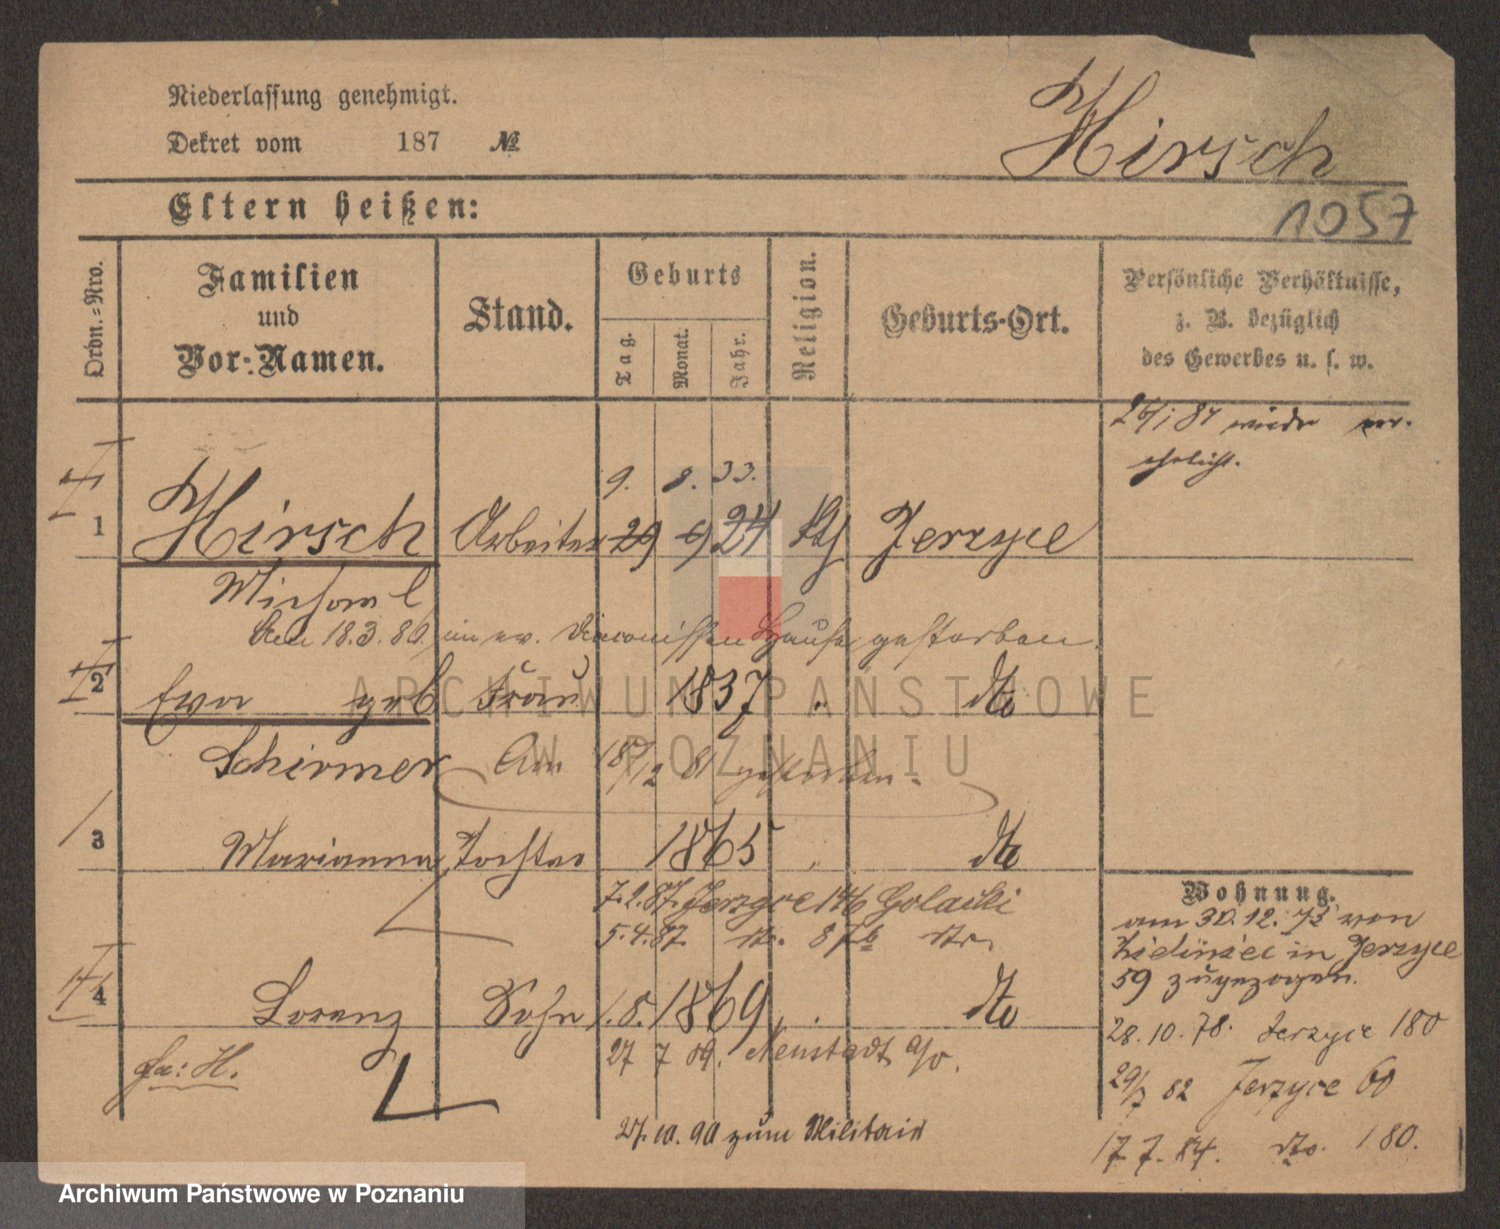 Niederlassung genehmigt.
Dekret vom 187 №
Hirsch
Eltern heißen:
1057
Ordn.-Nro.
Familien
und
Vor-Namen.
Stand.
Geburts
Tag.
Monat.
Jahr.
Religion.
Geburts-Ort.
Persönliche Verhältnisse,
z. B. bezüglich
des Gewerbes u. s. w.
wieder ver-
ehelicht.
9. 8. 33.
1 Hirsch Arbeiter 29 9 24 Kth Jerzyce
Michael
Am 18.3.86 im ev. Diaconissen Hause gestorben.
2 Eva geb Frau 1837 " dto
Schirmer Am 18/12 81 gestorben.
3 Marianna Tochter 1865 " dto
7.2.87. Jerzyce 146
5.4.87. dto. 87b
4 Lorenz Sohn 1.8. 1869 " dto
27 7 89. Neustadt
27.10.90 zum Militair
Wohnung.
am 30.12.73 von
in Jerzyce
59 zugezogen.
28.10.78. Jerzyce 180
29/7 82 Jerzyce 60
17.7.84. dto. 180.
ARCHIWUM PAŃSTWOWE
W POZNANIU
Archiwum Państwowe w Poznaniu